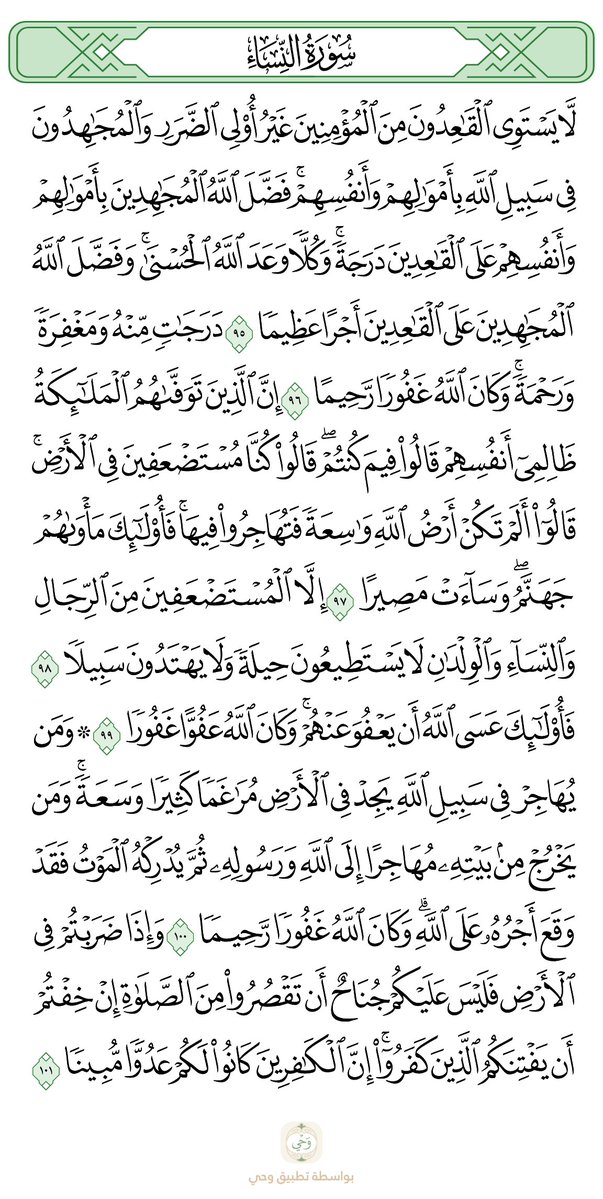 سُورَةُ النِّسَاءِ
لَّا يَسْتَوِى ٱلْقَـٰعِدُونَ مِنَ ٱلْمُؤْمِنِينَ غَيْرُ أُو۟لِى ٱلضَّرَرِ وَٱلْمُجَـٰهِدُونَ
فِى سَبِيلِ ٱللَّهِ بِأَمْوَٰلِهِمْ وَأَنفُسِهِمْ ۚ فَضَّلَ ٱللَّهُ ٱلْمُجَـٰهِدِينَ بِأَمْوَٰلِهِمْ
وَأَنفُسِهِمْ عَلَى ٱلْقَـٰعِدِينَ دَرَجَةً ۚ وَكُلًّا وَعَدَ ٱللَّهُ ٱلْحُسْنَىٰ ۚ وَفَضَّلَ ٱللَّهُ
ٱلْمُجَـٰهِدِينَ عَلَى ٱلْقَـٰعِدِينَ أَجْرًا عَظِيمًا ٩٥ دَرَجَـٰتٍ مِّنْهُ وَمَغْفِرَةً
وَرَحْمَةً ۚ وَكَانَ ٱللَّهُ غَفُورًا رَّحِيمًا ٩٦ إِنَّ ٱلَّذِينَ تَوَفَّىٰهُمُ ٱلْمَلَـٰٓئِكَةُ
ظَالِمِىٓ أَنفُسِهِمْ قَالُوا۟ فِيمَ كُنتُمْ ۖ قَالُوا۟ كُنَّا مُسْتَضْعَفِينَ فِى ٱلْأَرْضِ ۚ
قَالُوٓا۟ أَلَمْ تَكُنْ أَرْضُ ٱللَّهِ وَٰسِعَةً فَتُهَاجِرُوا۟ فِيهَا ۚ فَأُو۟لَـٰٓئِكَ مَأْوَىٰهُمْ
جَهَنَّمُ ۖ وَسَآءَتْ مَصِيرًا ٩٧ إِلَّا ٱلْمُسْتَضْعَفِينَ مِنَ ٱلرِّجَالِ
وَٱلنِّسَآءِ وَٱلْوِلْدَٰنِ لَا يَسْتَطِيعُونَ حِيلَةً وَلَا يَهْتَدُونَ سَبِيلًا ٩٨
فَأُو۟لَـٰٓئِكَ عَسَى ٱللَّهُ أَن يَعْفُوَ عَنْهُمْ ۚ وَكَانَ ٱللَّهُ عَفُوًّا غَفُورًا ٩٩ ۞ وَمَن
يُهَاجِرْ فِى سَبِيلِ ٱللَّهِ يَجِدْ فِى ٱلْأَرْضِ مُرَٰغَمًا كَثِيرًا وَسَعَةً ۚ وَمَن
يَخْرُجْ مِنۢ بَيْتِهِۦ مُهَاجِرًا إِلَى ٱللَّهِ وَرَسُولِهِۦ ثُمَّ يُدْرِكْهُ ٱلْمَوْتُ فَقَدْ
وَقَعَ أَجْرُهُۥ عَلَى ٱللَّهِ ۗ وَكَانَ ٱللَّهُ غَفُورًا رَّحِيمًا ١٠٠ وَإِذَا ضَرَبْتُمْ فِى
ٱلْأَرْضِ فَلَيْسَ عَلَيْكُمْ جُنَاحٌ أَن تَقْصُرُوا۟ مِنَ ٱلصَّلَوٰةِ إِنْ خِفْتُمْ
أَن يَفْتِنَكُمُ ٱلَّذِينَ كَفَرُوٓا۟ ۚ إِنَّ ٱلْكَـٰفِرِينَ كَانُوا۟ لَكُمْ عَدُوًّا مُّبِينًا ١٠١
وَحْي
بواسطة تطبيق وحي